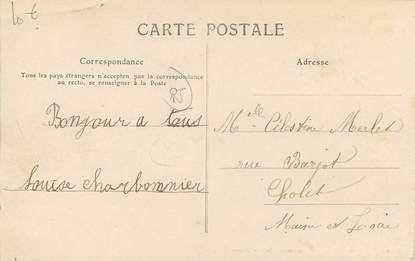 10 t
CARTE POSTALE
Correspondance
Tous les pays étrangers n'acceptent pas la correspondance
au recto, se renseigner à la Poste
85
Bonjour a tous
Louise Charbonnier
Adresse
Melle Célestine Merlet
rue Barjot
Cholet
Maine et Loire